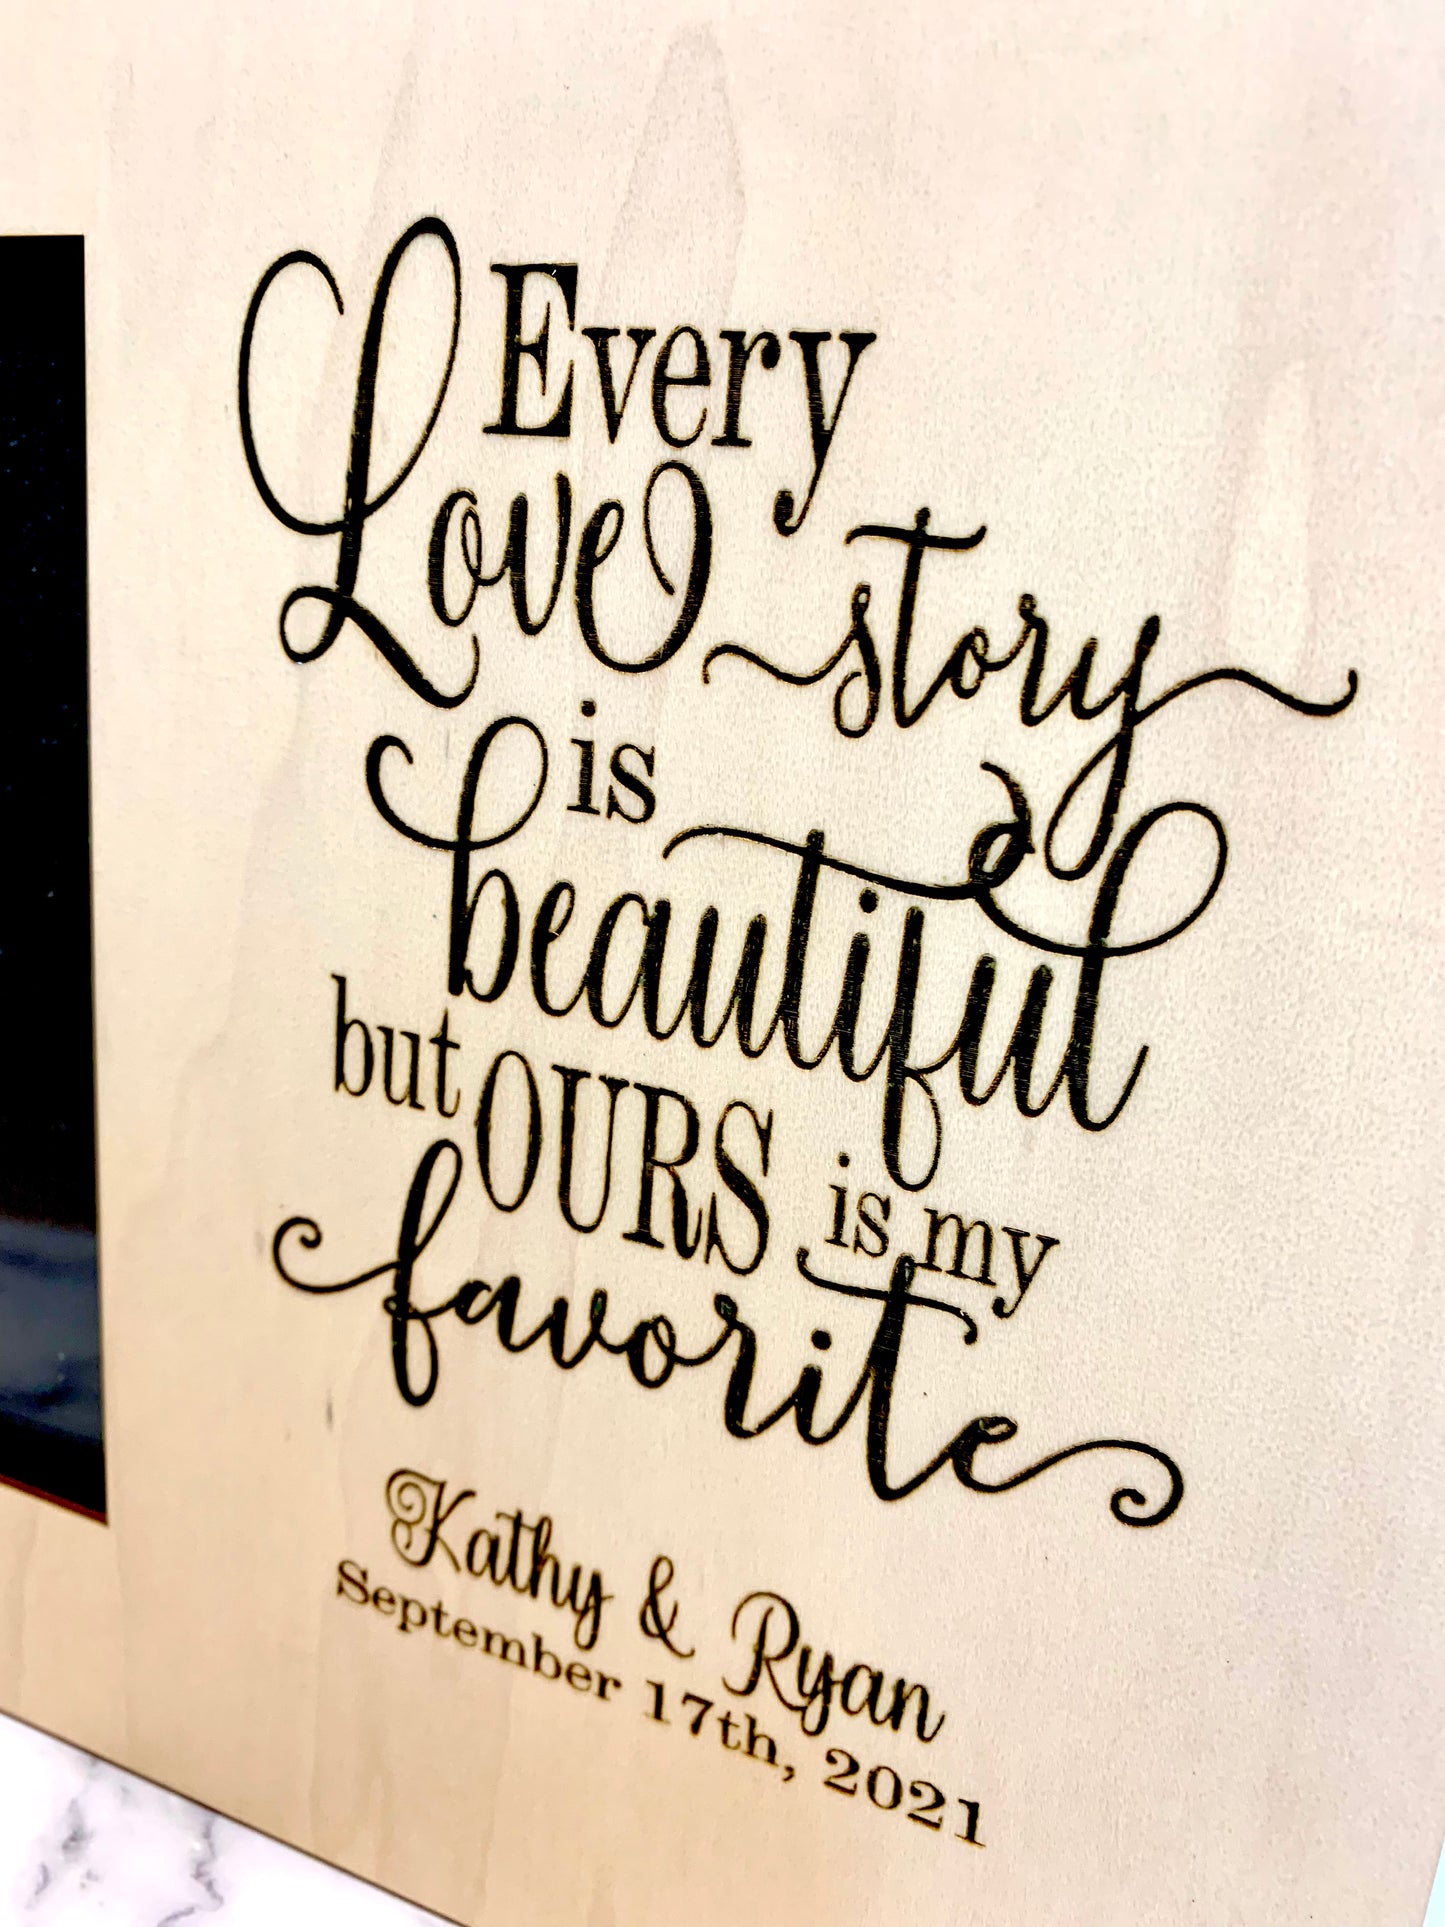 Every
Love story
is
beautiful
but OURS is my
favorite
Kathy & Ryan
September 17th, 2021